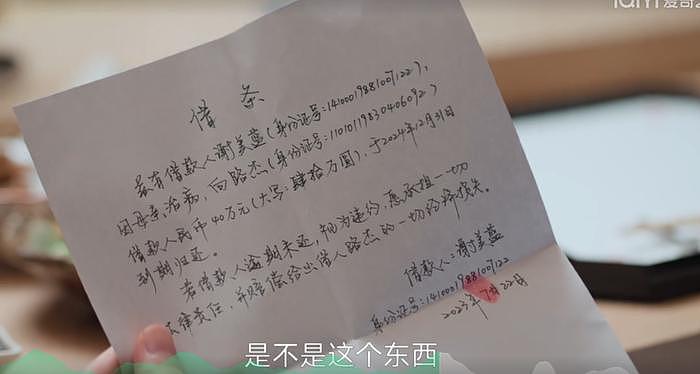 iQIYI 爱奇艺
借条
兹有借款人谢美蓝(身份证号:14100019881007122),
因母亲治病,向路杰(身份证号:11010119830406092)
借款人民币40万元(大写:肆拾万圆),于2024年12月31日
到期归还。
若借款人逾期未还,视为违约,愿承担一切
法律责任,并赔偿给出借人路杰的一切经济损失。
借款人:谢美蓝
身份证号:14100019881007122
2023年7月22日
是不是这个东西